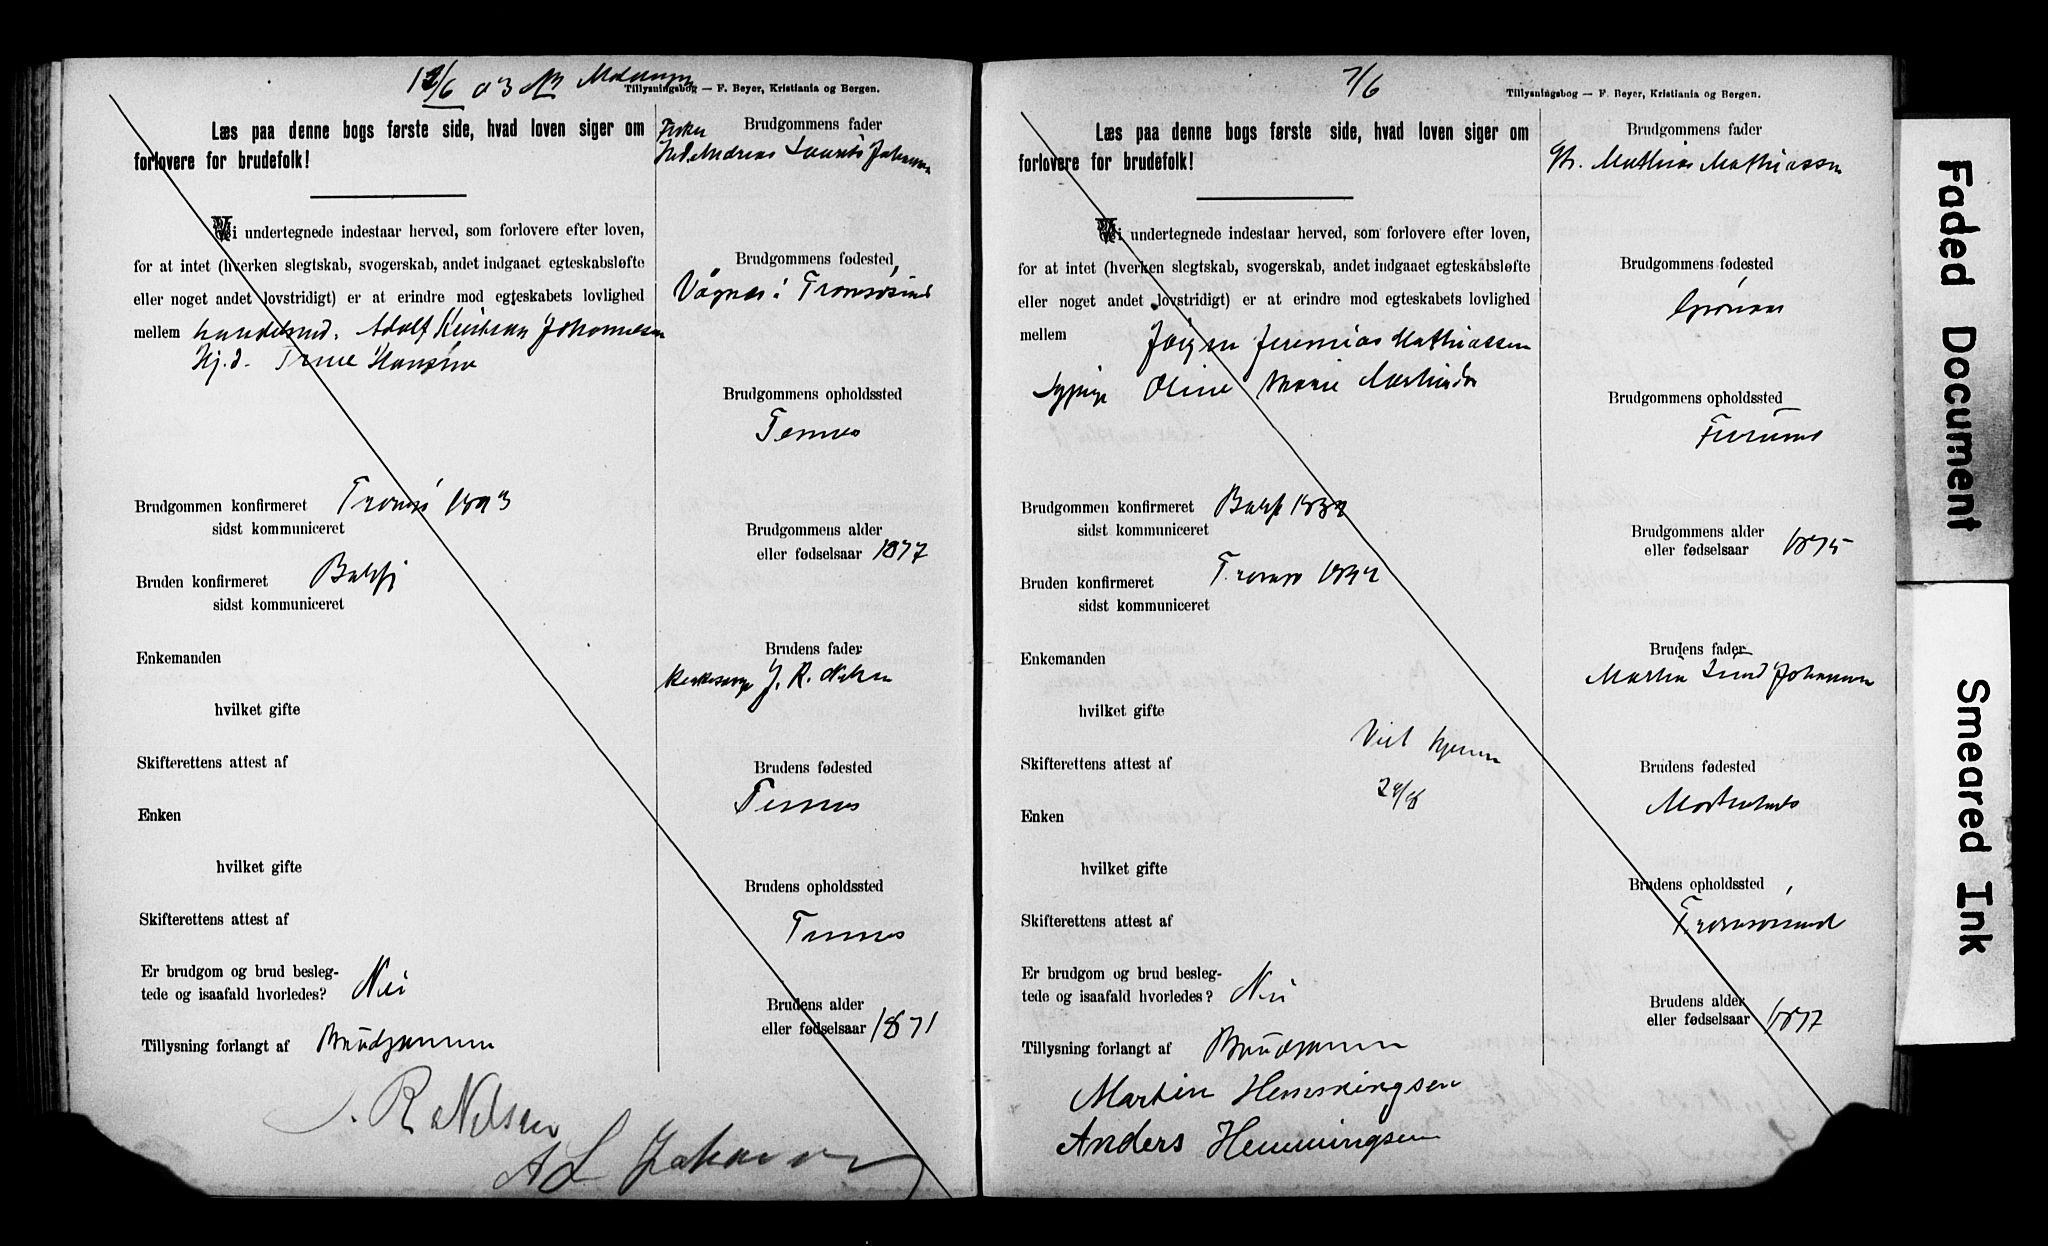 12/6 03
Tillysningsbog — F. Beyer, Kristiania og Bergen.
Læs paa denne bogs første side, hvad loven siger om
forlovere for brudefolk!
Vi undertegnede indestaar herved, som forlovere efter loven,
for at intet (hverken slegtskab, svogerskab, andet indgaaet egteskabsløfte
eller noget andet lovstridigt) er at erindre mod egteskabets lovlighed
mellem handelsmd. Adolf Kristian Johannesen
Pj. d. Trine Hansine
Brudgommen konfirmeret Tromsø 1893
sidst kommuniceret
Bruden konfirmeret Balsfj
sidst kommuniceret
Enkemanden
hvilket gifte
Skifterettens attest af
Enken
hvilket gifte
Skifterettens attest af
Er brudgom og brud besleg-
tede og isaafald hvorledes? Nei
Tillysning forlangt af Brudgommen
Brudgommens fader
Fisker
Andreas Laurits Johannesen
Brudgommens fødested
Vågnes i Tromsøsund
Brudgommens opholdssted
Tennes
Brudgommens alder
eller fødselsaar 1877
Brudens fader
Kirkesanger J. R. Nilsen
Brudens fødested
Tennes
Brudens opholdssted
Tennes
Brudens alder
eller fødselsaar 1871
J. R. Nilsen
A L Johannesen
7/6
Tillysningsbog — F. Beyer, Kristiania og Bergen.
Læs paa denne bogs første side, hvad loven siger om
forlovere for brudefolk!
Vi undertegnede indestaar herved, som forlovere efter loven,
for at intet (hverken slegtskab, svogerskab, andet indgaaet egteskabsløfte
eller noget andet lovstridigt) er at erindre mod egteskabets lovlighed
mellem Jørgen Jeremias Mathiassen
Sypige Oline Marie Martinsdr
Brudgommen konfirmeret Balsfj
sidst kommuniceret
Bruden konfirmeret Tromsø 1892
sidst kommuniceret
Enkemanden
hvilket gifte
Viet hjemme
Skifterettens attest af
Enken
hvilket gifte
Skifterettens attest af
Er brudgom og brud besleg-
tede og isaafald hvorledes? Nei
Tillysning forlangt af Brudgommen
Brudgommens fader
Gbr. Mathias Mathiassen
Brudgommens fødested
Grønaas
Brudgommens opholdssted
Brudgommens alder
eller fødselsaar 1875
Brudens fader
Martin Lund Johannesen
Brudens fødested
Brudens opholdssted
Tromsøsund
Brudens alder
eller fødselsaar 1877
Martin Hemmingsen
Anders Hemmingsen
Faded Document
Smeared Ink